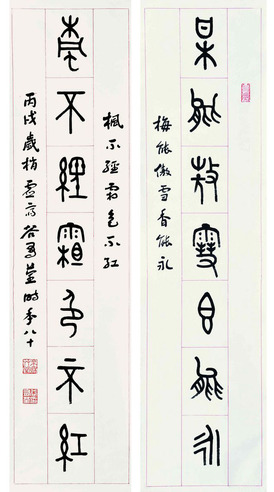 梅能傲雪香能永
梅能傲雪香能永
楓不經霜色不紅
楓不經霜色不紅
丙戌歲梢
時年八十